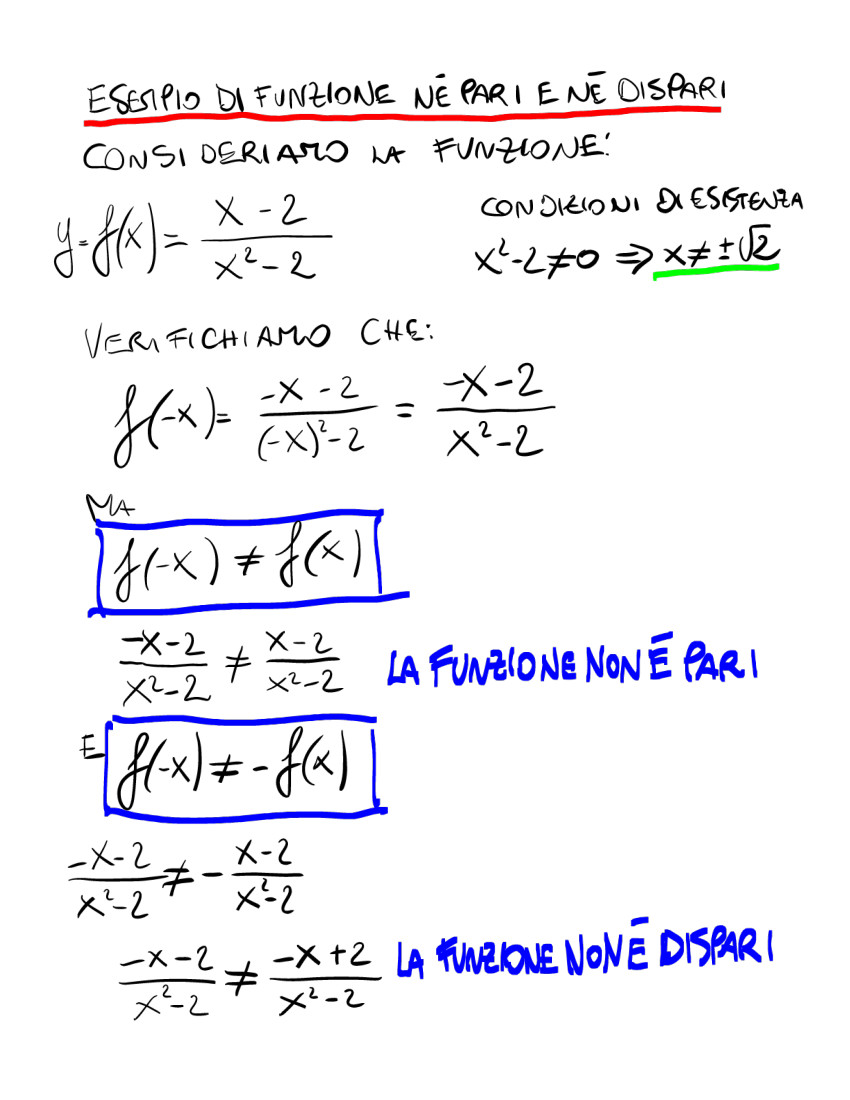 ESEMPIO DI FUNZIONE NÉ PARI E NÉ DISPARI
CONSIDERIAMO LA FUNZIONE:
y=f(x)= (x-2)/(x²-2)
CONDIZIONI DI ESISTENZA
x²-2≠0 ⇒ x≠±√2
VERIFICHIAMO CHE:
f(-x)= (-x-2)/((-x)²-2) = (-x-2)/(x²-2)
MA
f(-x) ≠ f(x)
(-x-2)/(x²-2) ≠ (x-2)/(x²-2) LA FUNZIONE NON È PARI
E f(-x) ≠ -f(x)
(-x-2)/(x²-2) ≠ - (x-2)/(x²-2)
(-x-2)/(x²-2) ≠ (-x+2)/(x²-2) LA FUNZIONE NON È DISPARI